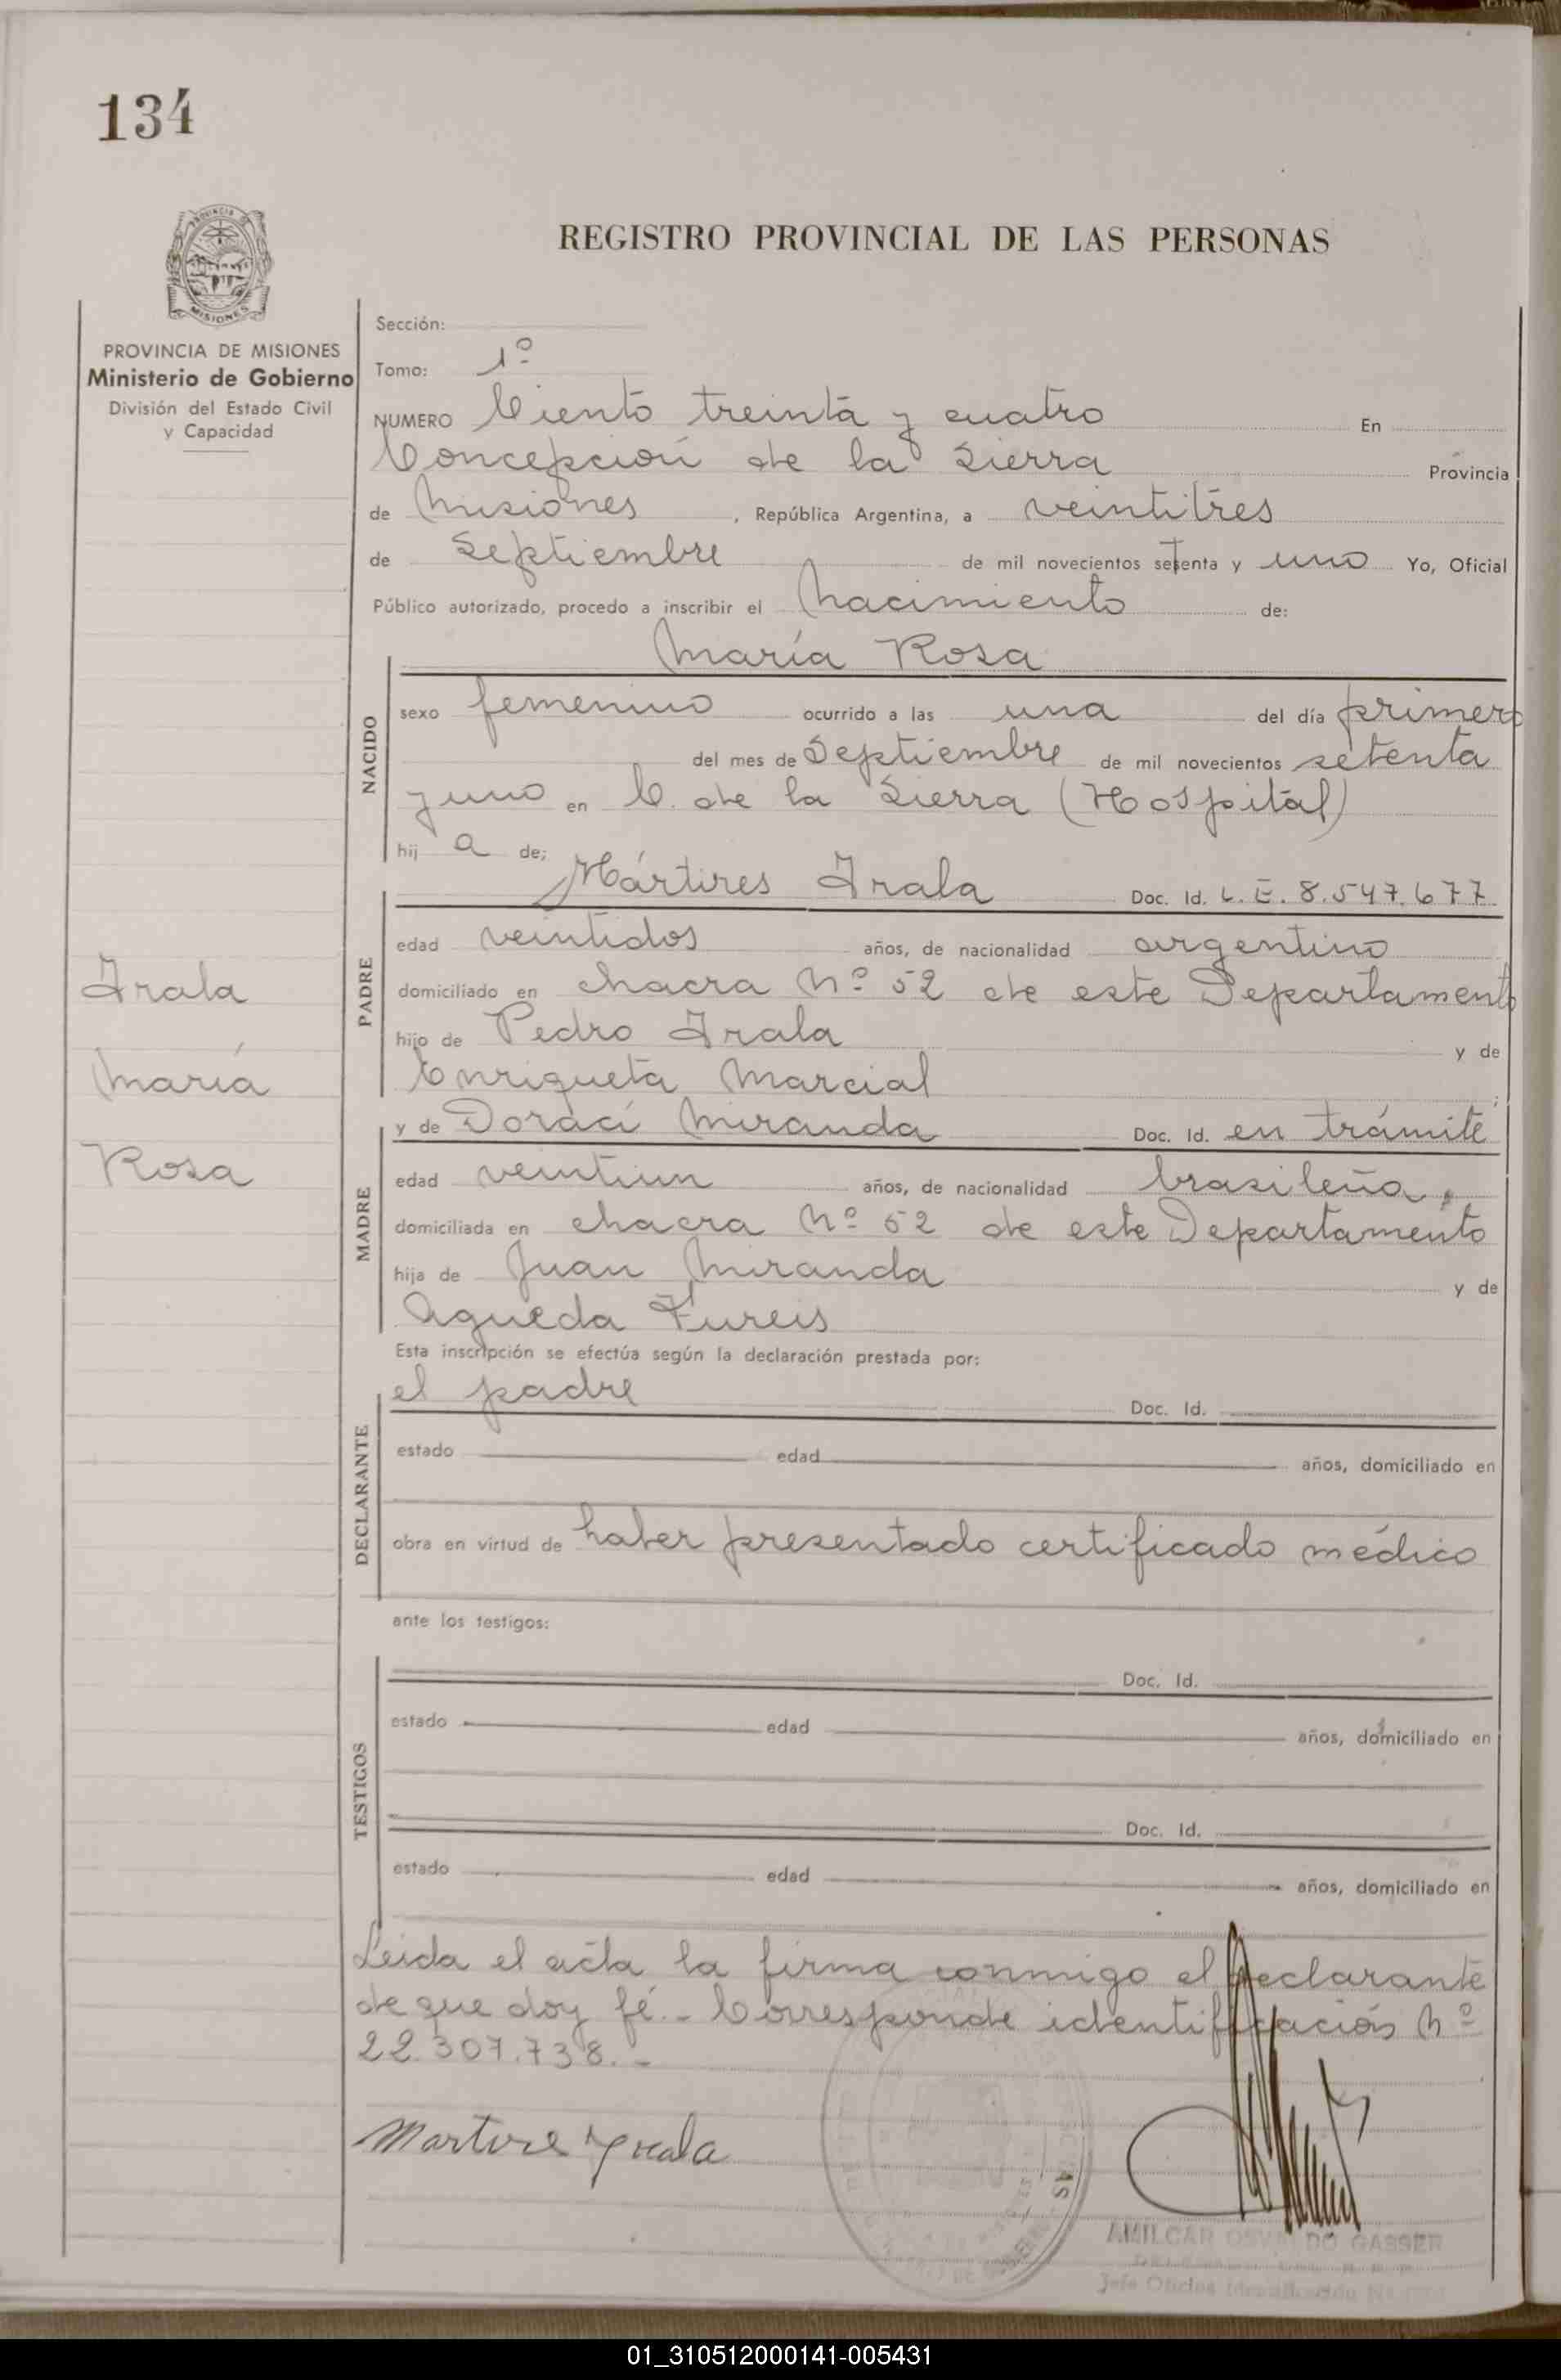 134
PROVINCIA DE
MISIONES
REGISTRO PROVINCIAL DE LAS PERSONAS
PROVINCIA DE MISIONES
Ministerio de Gobierno
División del Estado Civil
y Capacidad
Irala
María
Rosa
Sección:
Tomo: 1º
NUMERO Ciento treinta y cuatro En
Concepción de la Sierra Provincia
de Misiones, República Argentina, a veintitres
de Septiembre de mil novecientos setenta y uno Yo, Oficial
Público autorizado, procedo a inscribir el Nacimiento de:
María Rosa
NACIDO
sexo femenino ocurrido a las una del día primero
del mes de Septiembre de mil novecientos setenta
y uno en C. de la Sierra (Hospital)
hij a de;
Mártires Irala Doc. Id. L.E. 8.547.677
PADRE
edad veintidos años, de nacionalidad argentino
domiciliado en chacra Nº 52 de este Departamento
hijo de Pedro Irala y de
Enriqueta Marcial ;
y de Doraci Miranda Doc. Id. en trámite
MADRE
edad veintiun años, de nacionalidad brasileña,
domiciliada en chacra Nº 52 de este Departamento
hija de Juan Miranda y de
Agueda Fureis
Esta inscripción se efectúa según la declaración prestada por:
el padre Doc. Id.
DECLARANTE
estado edad años, domiciliado en
obra en virtud de haber presentado certificado médico
ante los testigos:
TESTIGOS
Doc. Id.
estado edad años, domiciliado en
Doc. Id.
estado edad años, domiciliado en
Leida el acta la firma conmigo el declarante
de que doy fé.- Corresponde identificación Nº
22.307.738.-
Martire Yrala
AMILCAR OSVALDO GASSER
Jefe Oficina Identificación
01_310512000141-005431